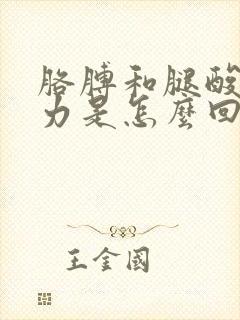 胳膊和腿酸
力是怎麼回
王金國